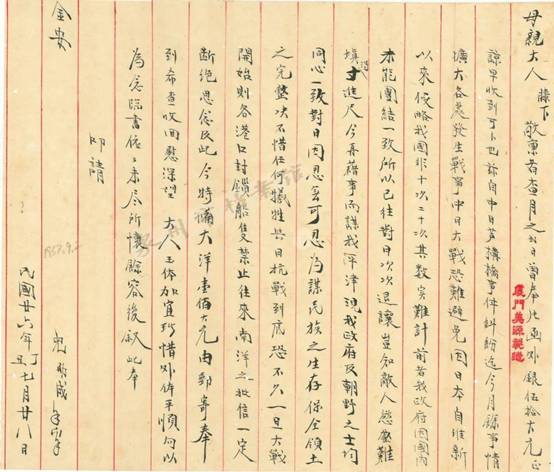 母親大人膝下敬禀者查月之廿日曾奉此並外銀伍拾大元正
諒早收到可卜也茲自中日芦溝橋事件糾紛迄今月餘事情
擴大各處發生戰事中日大戰恐難避免因日本自維新
以來侵略我國非十次二十次其數实难計前者我政府因國内
未能團結一致所以已往對日次次退讓豈知敵人慾壑難
填進尺今再藉事而謀我平津現我政府及朝野之士均
同心一致對日因忍無可忍為謀民族之生存保全領土
之完整决不惜任何犧牲與日抗戰到底恐不久一旦大戰
開始則各港口封鎖船隻禁止往來南洋之批信一定
断絶思念及此今特備大洋壹佰大元由郵寄奉
到希查收回慰深望 大人玉体加宜珍惜外俤平順勿以
為念臨書依依未尽所懷餘容後叙此奉
叩請
金安
兒
民國廿六年丁丑七月廿八日
廈門美源製造
1937.9.